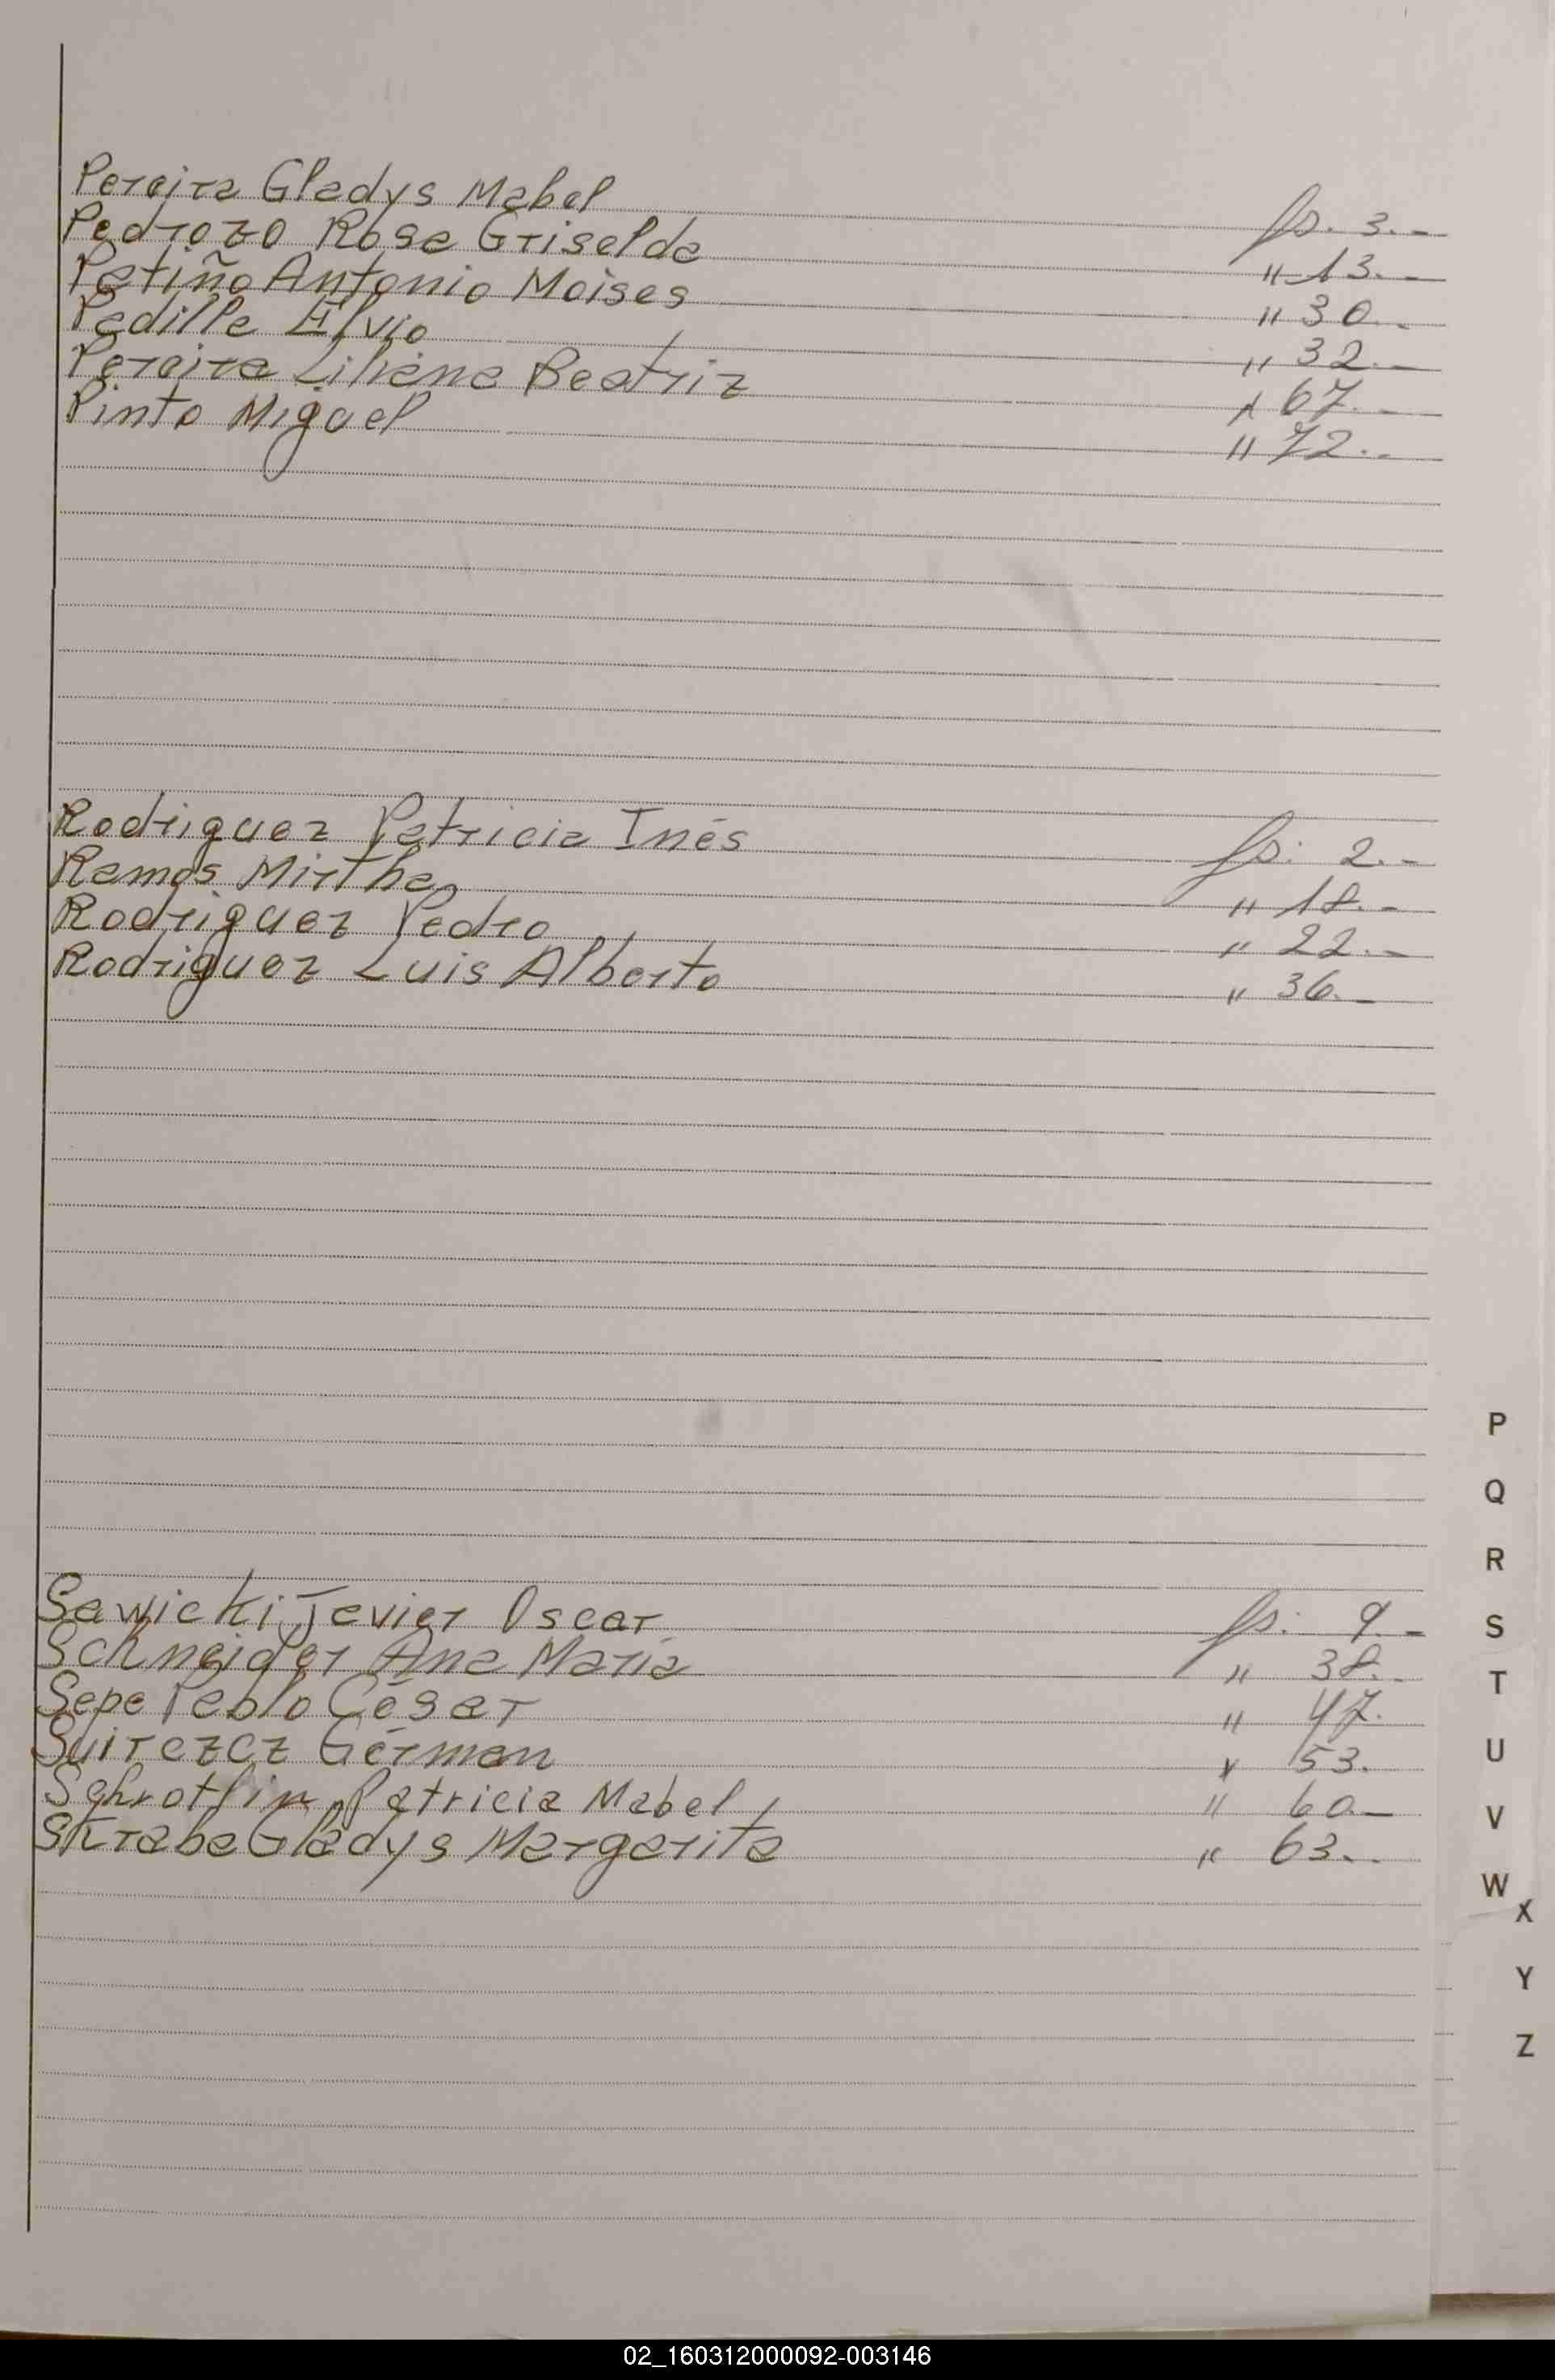 Pereira Gladys Mabel fs. 3.-
Pedrozo Rosa Griselda " 13.-
Patiño Antonio Moises " 30.-
Padilla Elvio " 32.-
Pereira Liliana Beatriz " 67.-
Pinto Miguel " 72.-
Rodriguez Patricia Inés fs: 2.-
Ramos Mirtha " 18.-
Rodriguez Pedro " 22.-
Rodriguez Luis Alberto " 36.-
Sawicki Javier Oscar fs: 9.-
Schneider Ana María " 38.-
Sepe Pablo César " 47.
Germán " 53.
Patricia Mabel " 60.-
Skraba Gladys Margarita " 63.-
P
Q
R
S
T
U
V
W
X
Y
Z
02_160312000092-003146